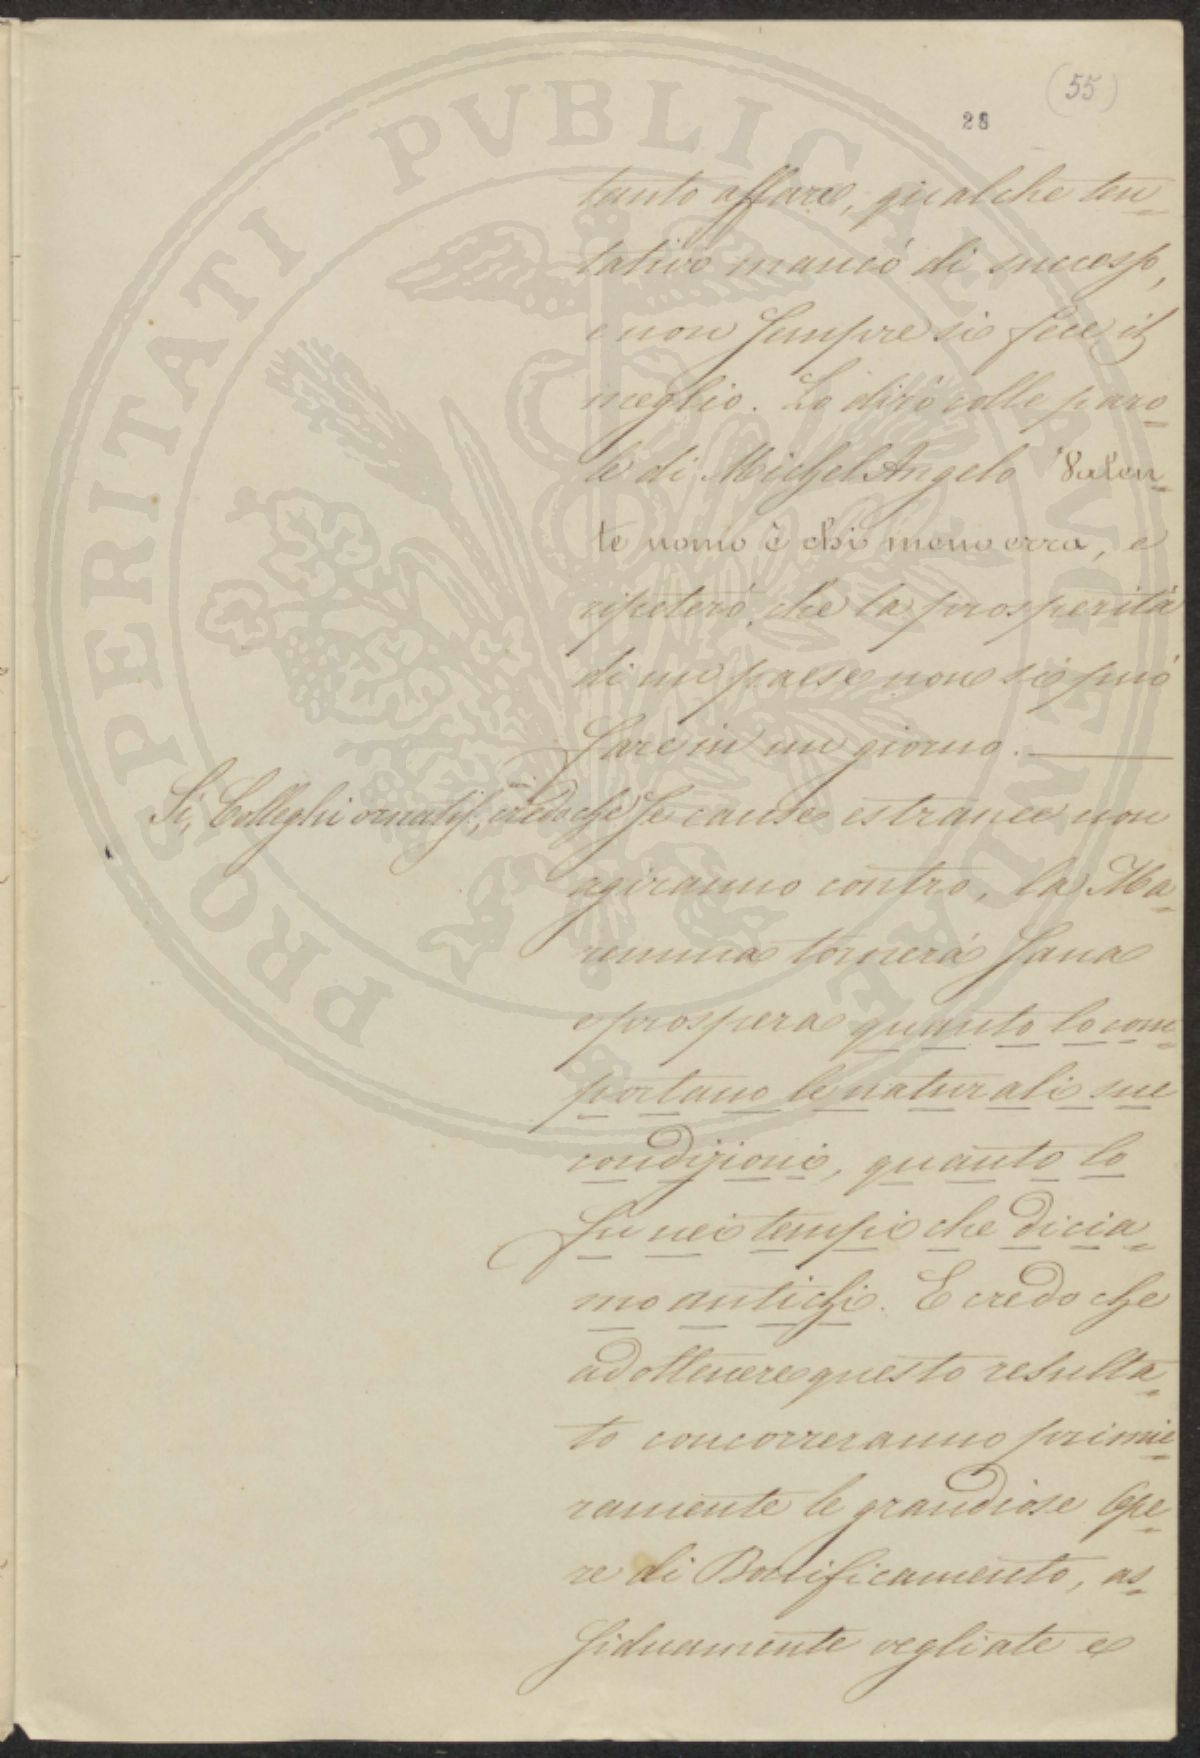 (55)
28
PROSPERITATI PVBLICAE AVGENDAE
tanto affare, qualche ten-
tativo mancò di successo,
e non sempre si fece il
meglio. Lo dirò colle paro-
le di MichelAngelo Valen-
te uomo è chi meno erra, e
ripeterò, che la prosperità
di un paese non si può
fare in un giorno.
Si, Colleghi ornatiss., credo che se cause estranee non
agiranno contro, la Ma-
remma tornerà sana
e prospera quanto lo com-
portano le naturali sue
condizioni, quanto lo
fu nei tempi che dicia-
mo antichi. E credo che
ad ottenere questo resulta-
to concorreranno primie-
ramente le grandiose Ope-
re di Bonificamento, as-
siduamente vegliate e